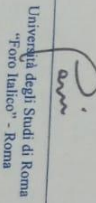 Università degli Studi di Roma
"Foro Italico" - Roma